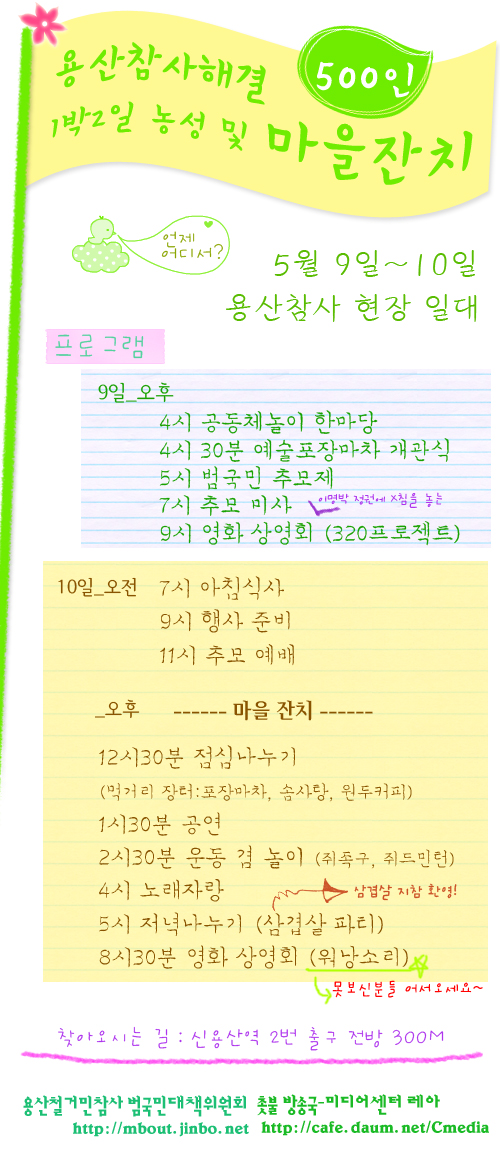 용산참사해결
500인
1박2일 농성 및 마을잔치
언제
어디서?
5월 9일~10일
용산참사 현장 일대
프로그램
9일_오후
4시 공동체놀이 한마당
4시 30분 예술포장마차 개관식
5시 범국민 추모제
7시 추모 미사 이명박 정권에 X침을 놓는
9시 영화 상영회 (320프로젝트)
10일_오전 7시 아침식사
9시 행사 준비
11시 추모 예배
_오후 ------ 마을 잔치 ------
12시30분 점심나누기
(먹거리 장터:포장마차, 솜사탕, 원두커피)
1시30분 공연
2시30분 운동 겸 놀이 (쥐족구, 쥐드민턴)
4시 노래자랑 삼겹살 지참 환영!
5시 저녁나누기 (삼겹살 파티)
8시30분 영화 상영회 (워낭소리)
못보신분들 어서오세요~
찾아오시는 길 : 신용산역 2번 출구 전방 300M
용산철거민참사 범국민대책위원회 촛불 방송국-미디어센터 레아
http://mbout.jinbo.net http://cafe.daum.net/Cmedia